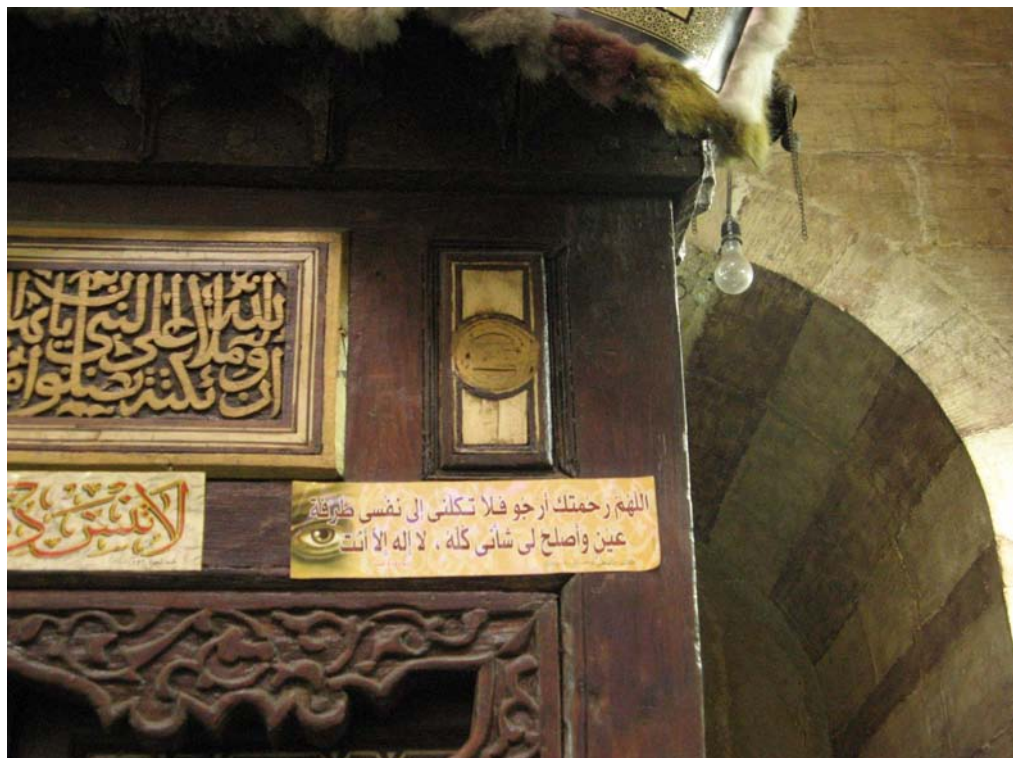 إن الله وملائكته يصلون على النبي يا أيها
اللهم رحمتك أرجو فلا تكلنى إلى نفسى طرفة
عين وأصلح لى شأنى كله ، لا إله إلا أنت
لا تنس